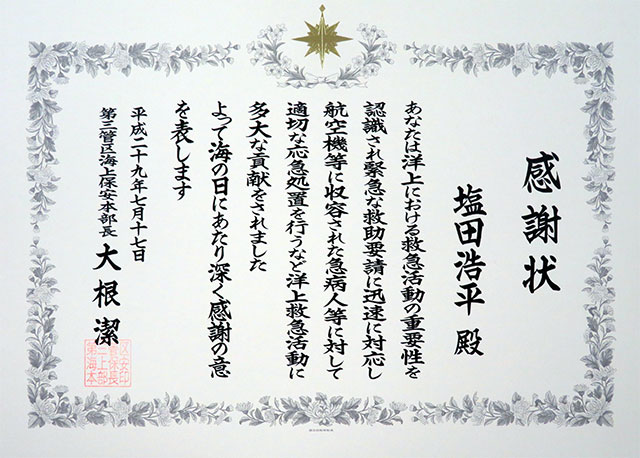 感謝状
塩田浩平 殿
あなたは洋上における救急活動の重要性を
認識され緊急な救助要請に迅速に対応し
航空機等に収容された急病人等に対して
適切な応急処置を行うなど洋上救急活動に
多大な貢献をされました
よって海の日にあたり深く感謝の意
を表します
平成二十九年七月十七日
第三管区海上保安本部長 大根 潔